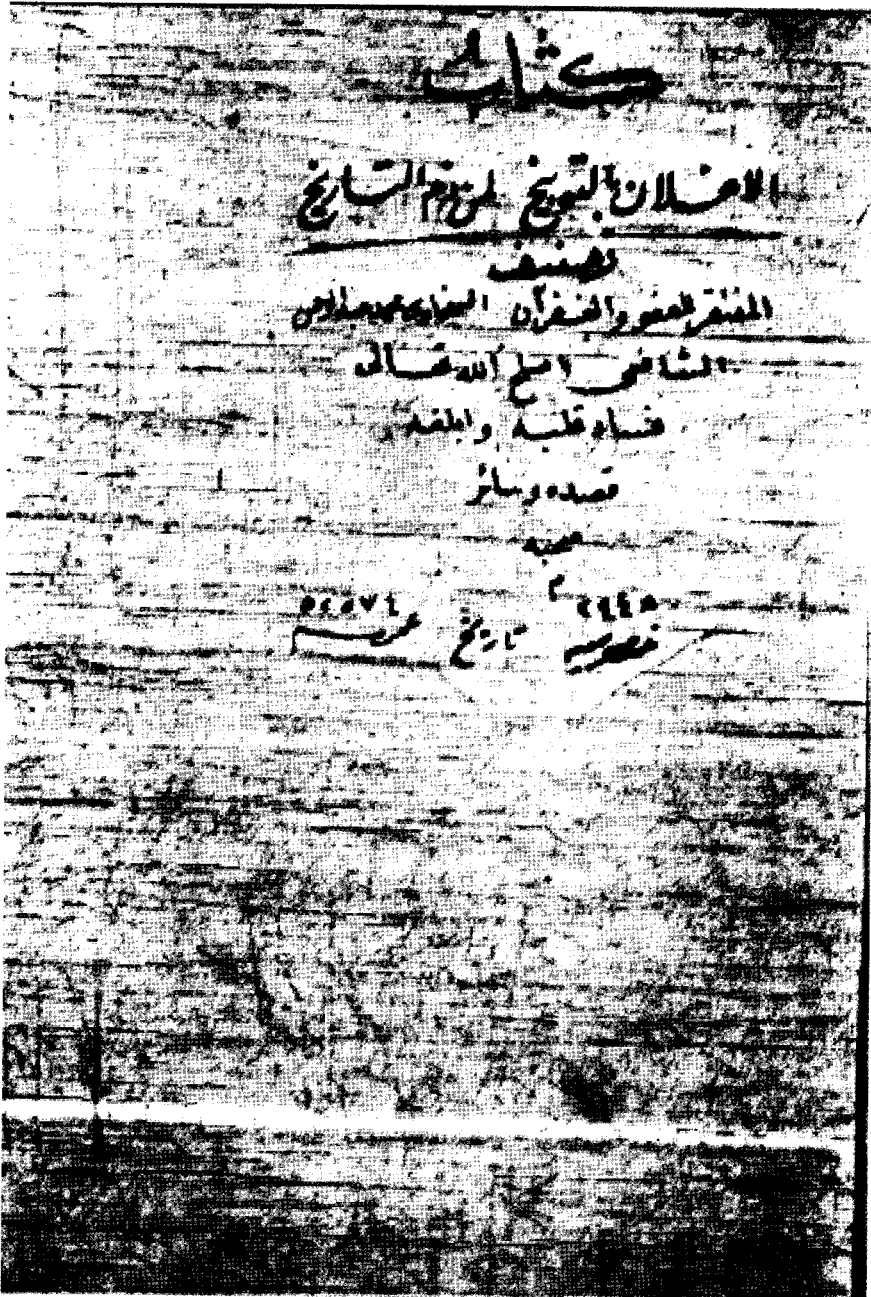 كتاب
الاعلان بالتوبيخ لمن ذم التاريخ
تصنيف
المفتقر للعفو والغفران السخاوي محمد عبد الرحمن
الشافعي اصلح الله تعالى
فساد قلبه وابلغه
قصده وسائر
محبه
م
٢٤٤٥ ٥٤٥٧٤
خصوصيه تاريخ عموميه